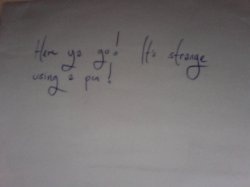 Here ya go! It's strange
using a pen!